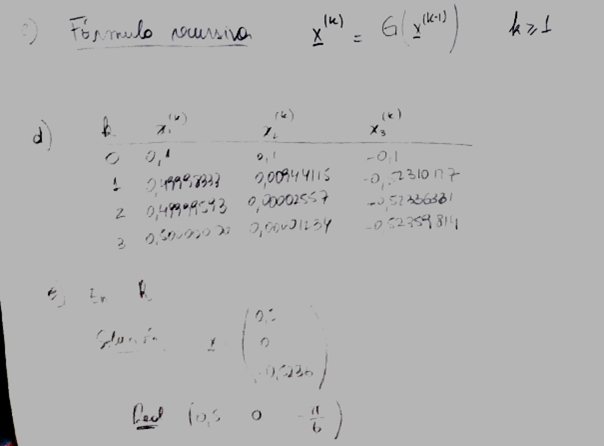 c) Fórmula recursiva x^(k) = G(x^(k-1)) k ≥ 1
d) k x₁^(k) x₂^(k) x₃^(k)
0 0,1 0,1 -0,1
1 0,49998333 0,00944115 -0,52310127
2 0,49999593 0,00002557 -0,52336331
3 0,50000000 0,00001234 -0,52359814
k
Solución x
0,5
0
-0,5236
Real (0,5 0 -π/6)